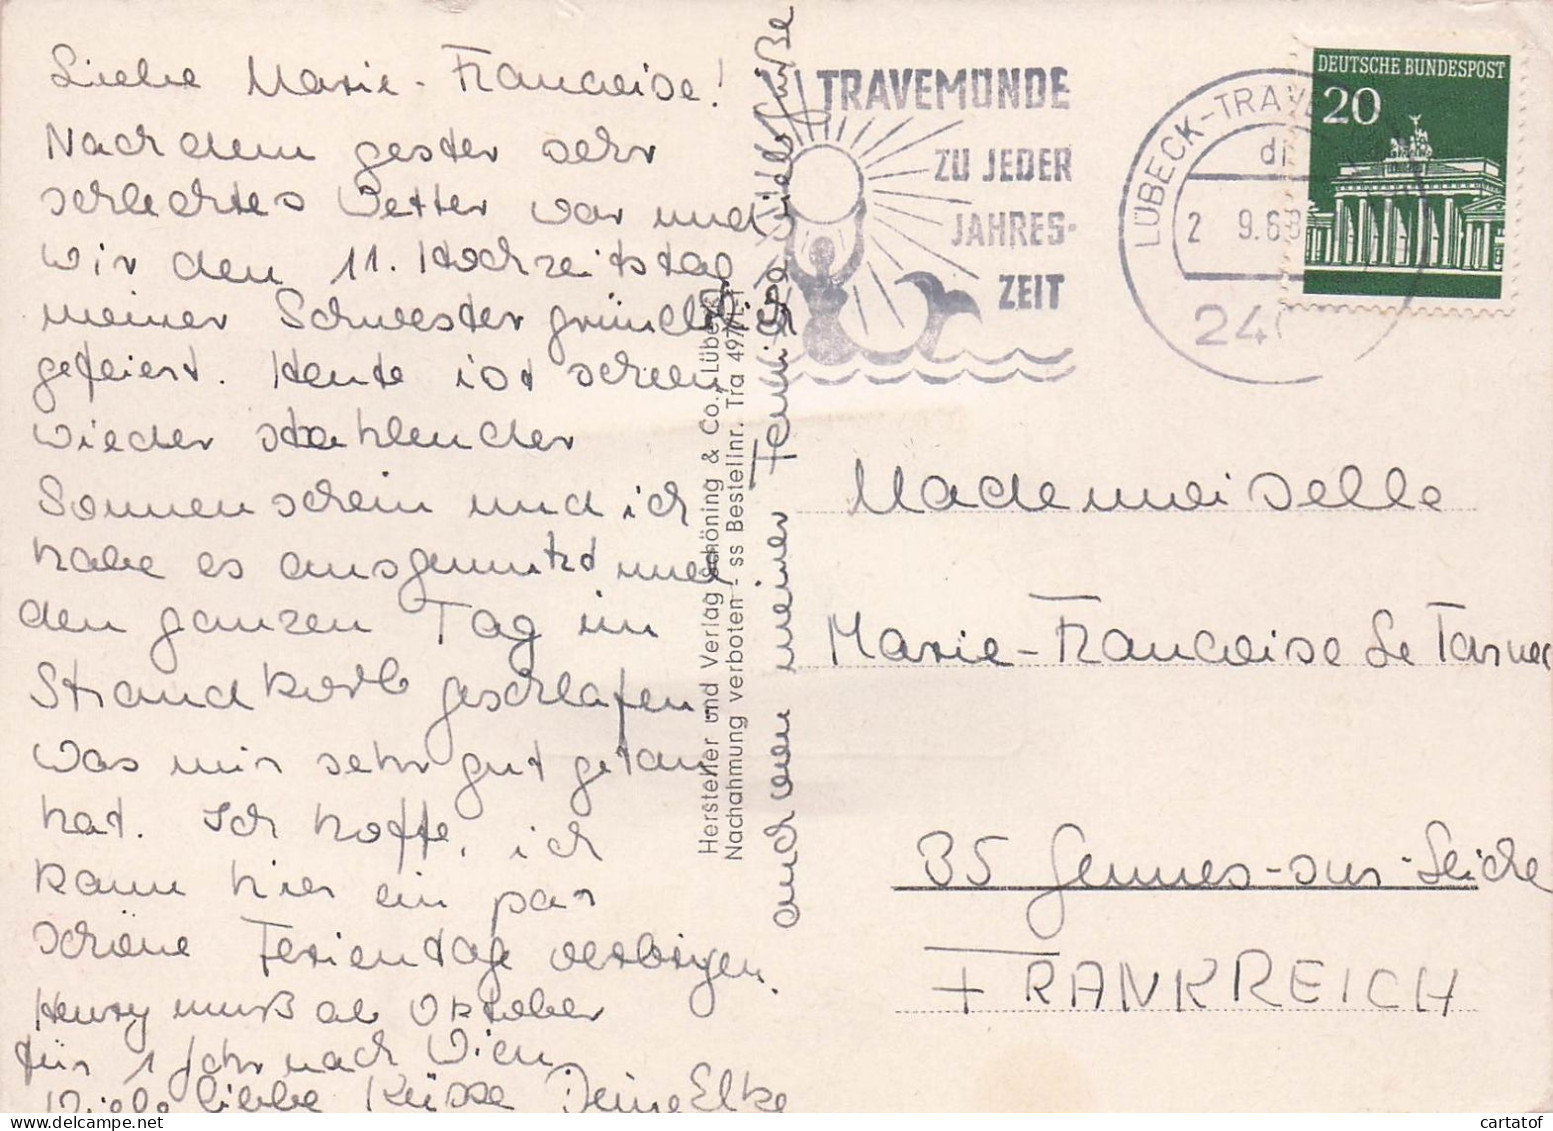 Liebe Marie-Francoise!
Nachdem gester sehr
schlechtes Wetter war und
wir den 11. Hochzeitstag
meiner Schwester gründlich
gefeiert. Heute ist schon
wieder strahlender
Sonnenschein und ich
habe es ausgenutzt und
den ganzen Tag im
Strandkorb geschlafen
was mir sehr gut getan
hat. Ich hoffe, ich
kann hier ein par
schöne Ferientage verbrigen.
Henry muß ab Oktober
für 1 Jahr nach Wien
Viele liebe Küsse Deine Elke
auch von meiner Familie viele Grüße
Hersteller und Verlag Schöning & Co., Lübeck
Nachahmung verboten - ss Bestellnr. Tra 497
TRAVEMÜNDE
ZU JEDER
JAHRES-
ZEIT
LÜBECK-TRAVE
di
2 9.68
24
DEUTSCHE BUNDESPOST
20
Mademoiselle
Marie-Francoise Le
35 Gennes-sur-Seiche
FRANKREICH
cartatof